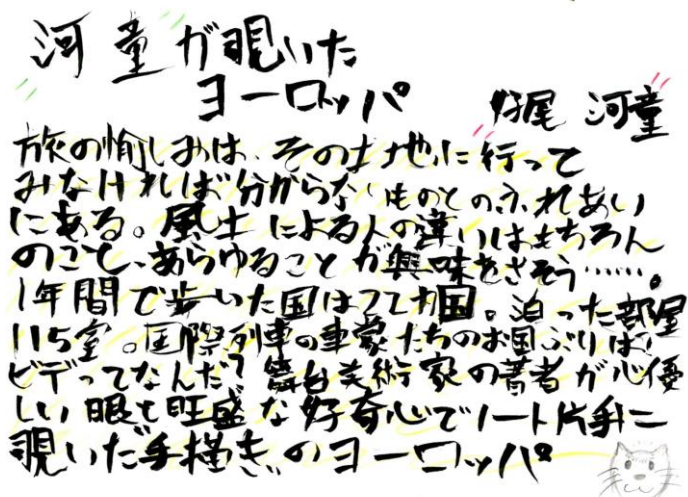 河童が覗いた
ヨーロッパ
妹尾 河童
旅の愉しみは、その土地に行って
みなければ分からないものとのふれあい
にある。風土による人の違いはもちろん
のこと、あらゆることが興味をさそう……。
1年間で歩いた国は22カ国。泊った部屋
115室。国際列車の車掌たちのお国ぶりは?
ビデってなんだ?舞台芸術家の著者が心優
しい眼と旺盛な好奇心でノート片手に
覗いた手描きのヨーロッパ